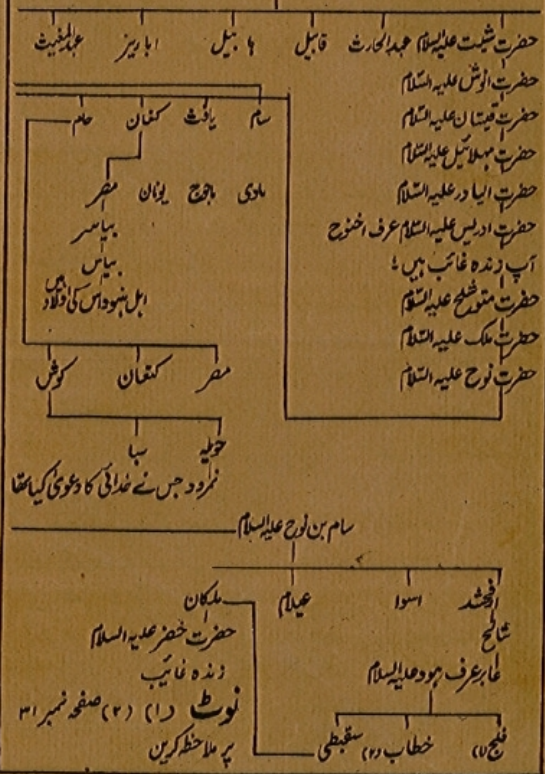 حضرت شیث علیہ السلام عبدالحارث قابیل ہابیل اباریز عبدالمغیث
حضرت انوش علیہ السلام
حضرت قینان علیہ السلام
حضرت مہلائیل علیہ السلام
حضرت الیادر علیہ السلام
حضرت ادریس علیہ السلام عرف اخنوح
آپ زندہ غائب ہیں
حضرت متوشلح علیہ السلام
حضرت ملک علیہ السلام
حضرت نوح علیہ السلام
سام یافث کنعان حام
مادی ماجوج یونان مصر
بیاسر
بیاس
اہل ہنود اس کی اولاد ہیں
مصر کنعان کوش
حویلہ سبا
نمرود جس نے خدائی کا دعویٰ کیا تھا
سام بن نوح علیہ السلام
ارفخشد اسوا عیلام ملکان
شالح
عابر عرف ہود علیہ السلام
حضرت خضر علیہ السلام
زندہ غائب
فلج (۱) خطاب (۲) سقبطی
نوٹ (۱) (۲) صفحہ نمبر ۳۱
پر ملاحظہ کریں